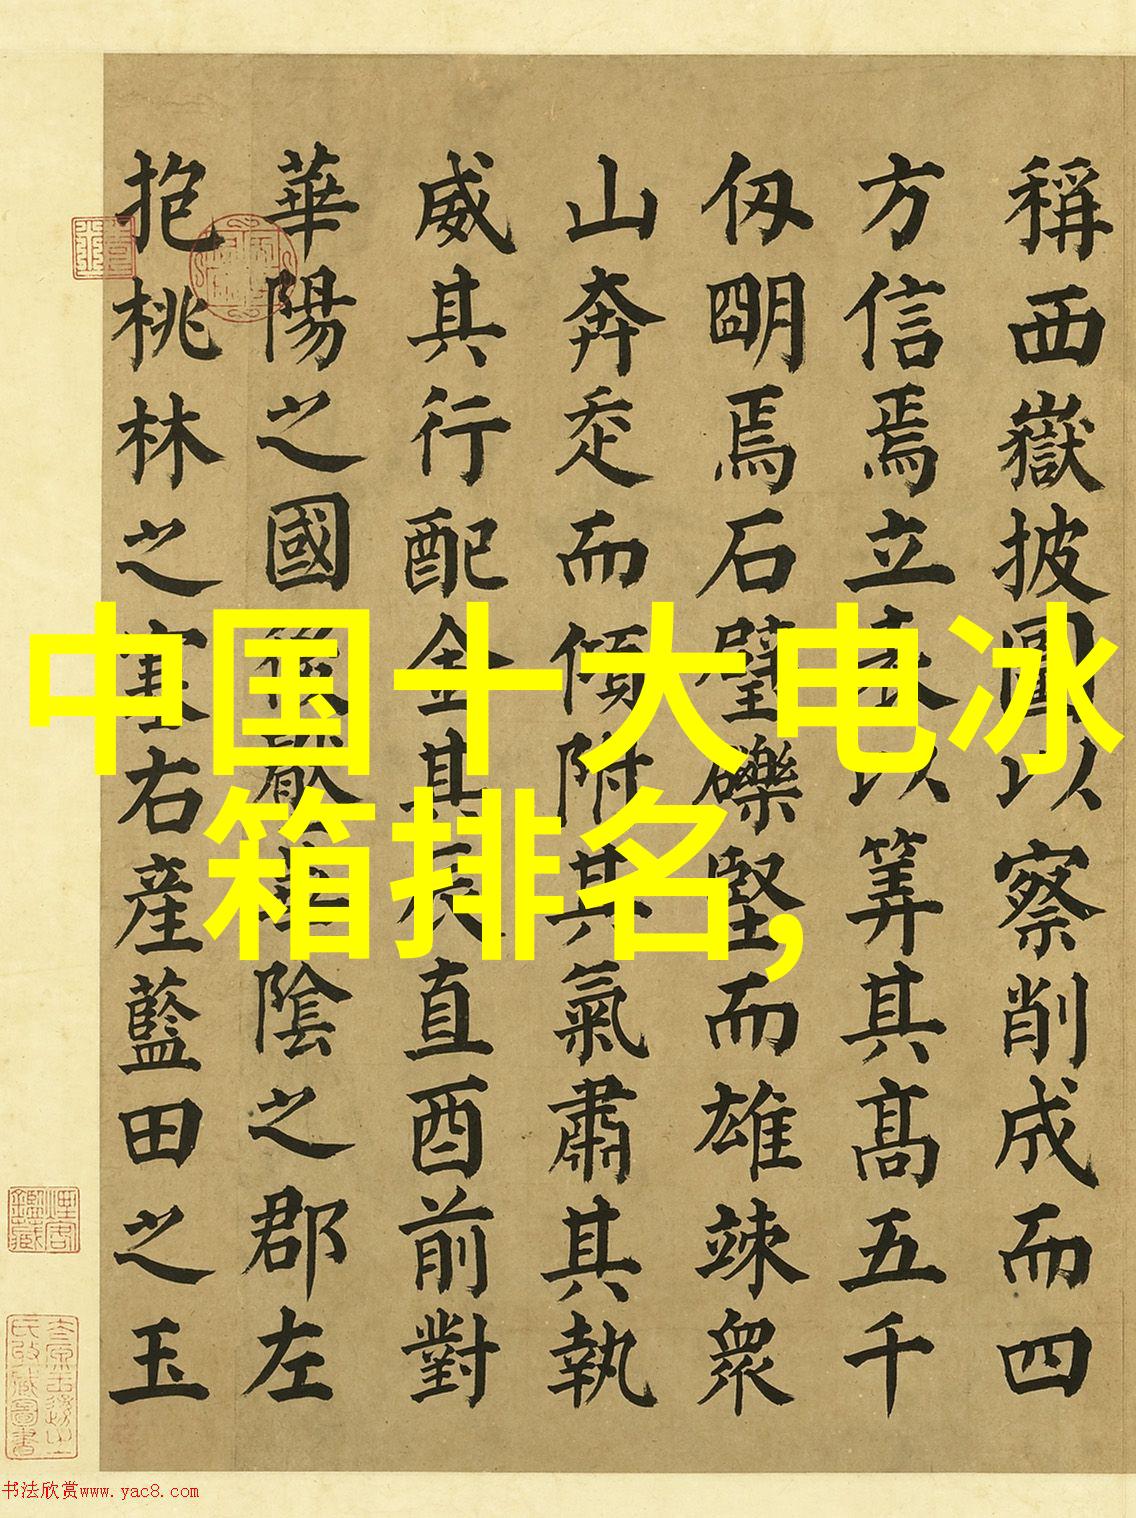 中国十大电冰
箱排名,
稱西嶽披圖以察削成而四
方信焉立表以筭其髙五千
仭朙焉石壁礫堅而雄竦衆
山奔走而傾附其氣肅其執
威其行配金其辰直酉前對
華陽之國後華陰之郡左
抱桃林之塞右産藍田之玉
书法欣赏www.yac8.com